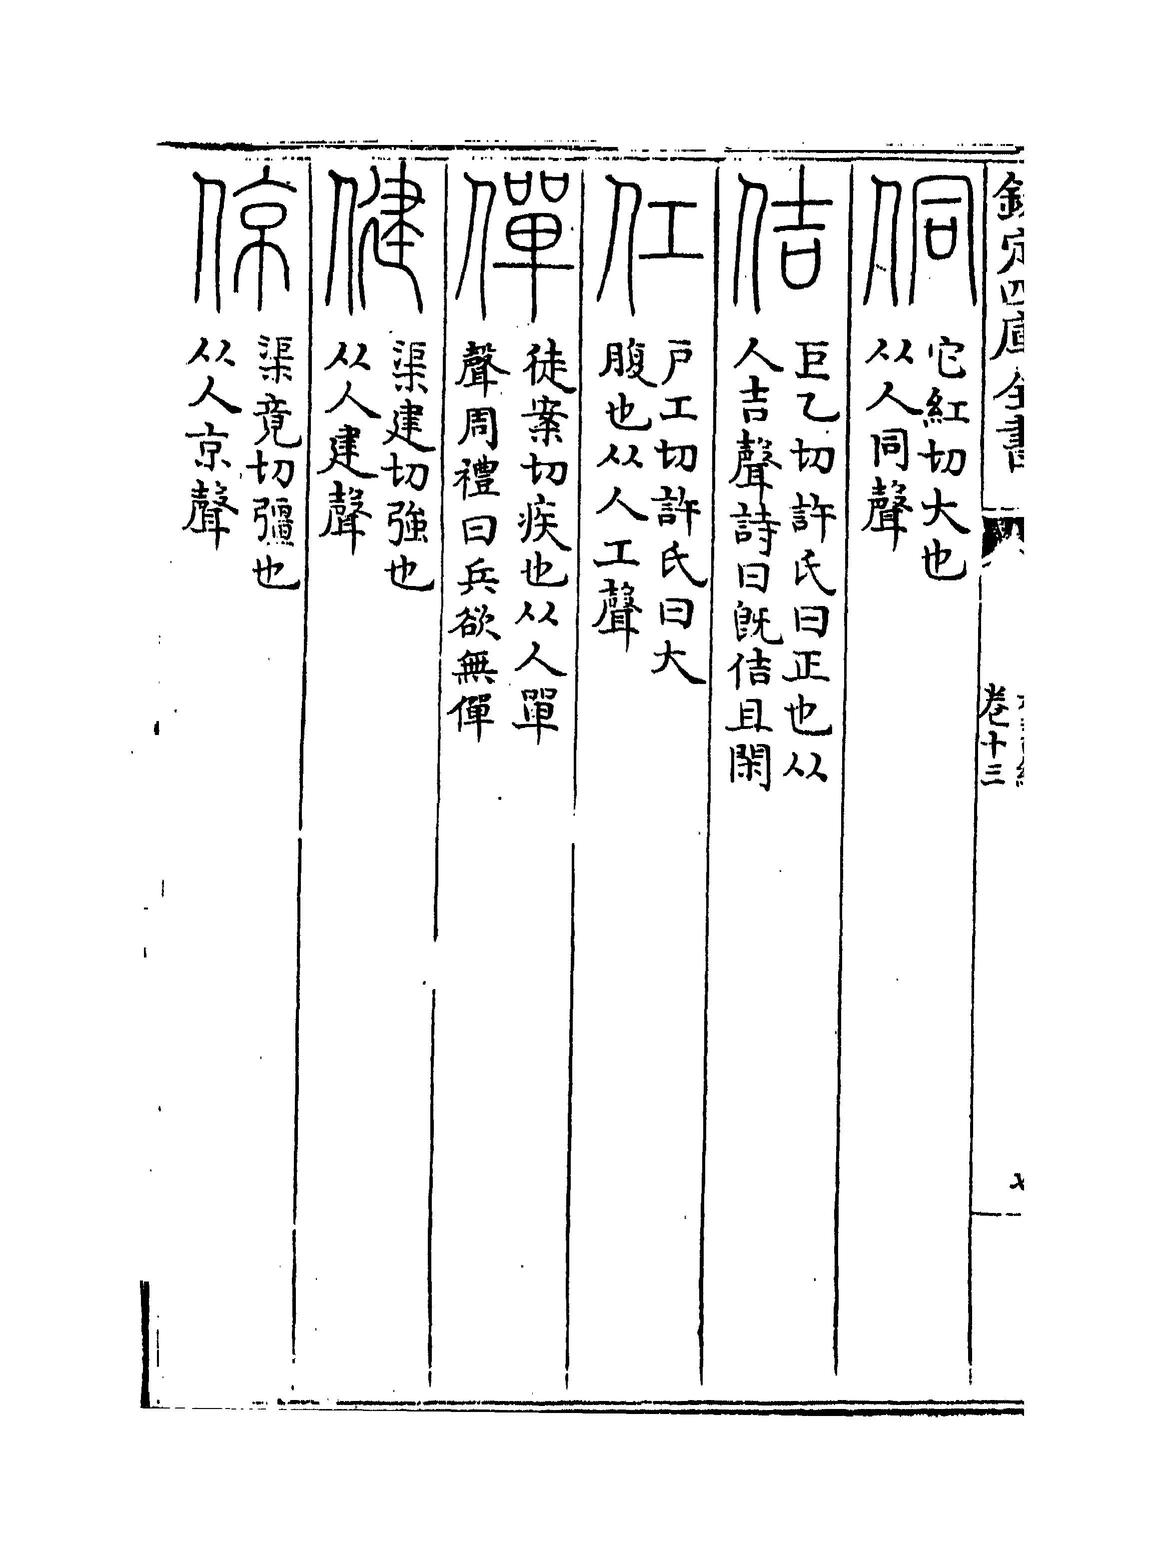 欽定四庫全書
卷十三
侗
它紅切大也
从人同聲
佶
巨乙切許氏曰正也从
人吉聲詩曰旣佶且閑
仜
戸工切許氏曰大
腹也从人工聲
僤
徒案切疾也从人單
聲周禮曰兵欲無僤
健
渠建切強也
从人建聲
倞
渠竟切彊也
从人京聲